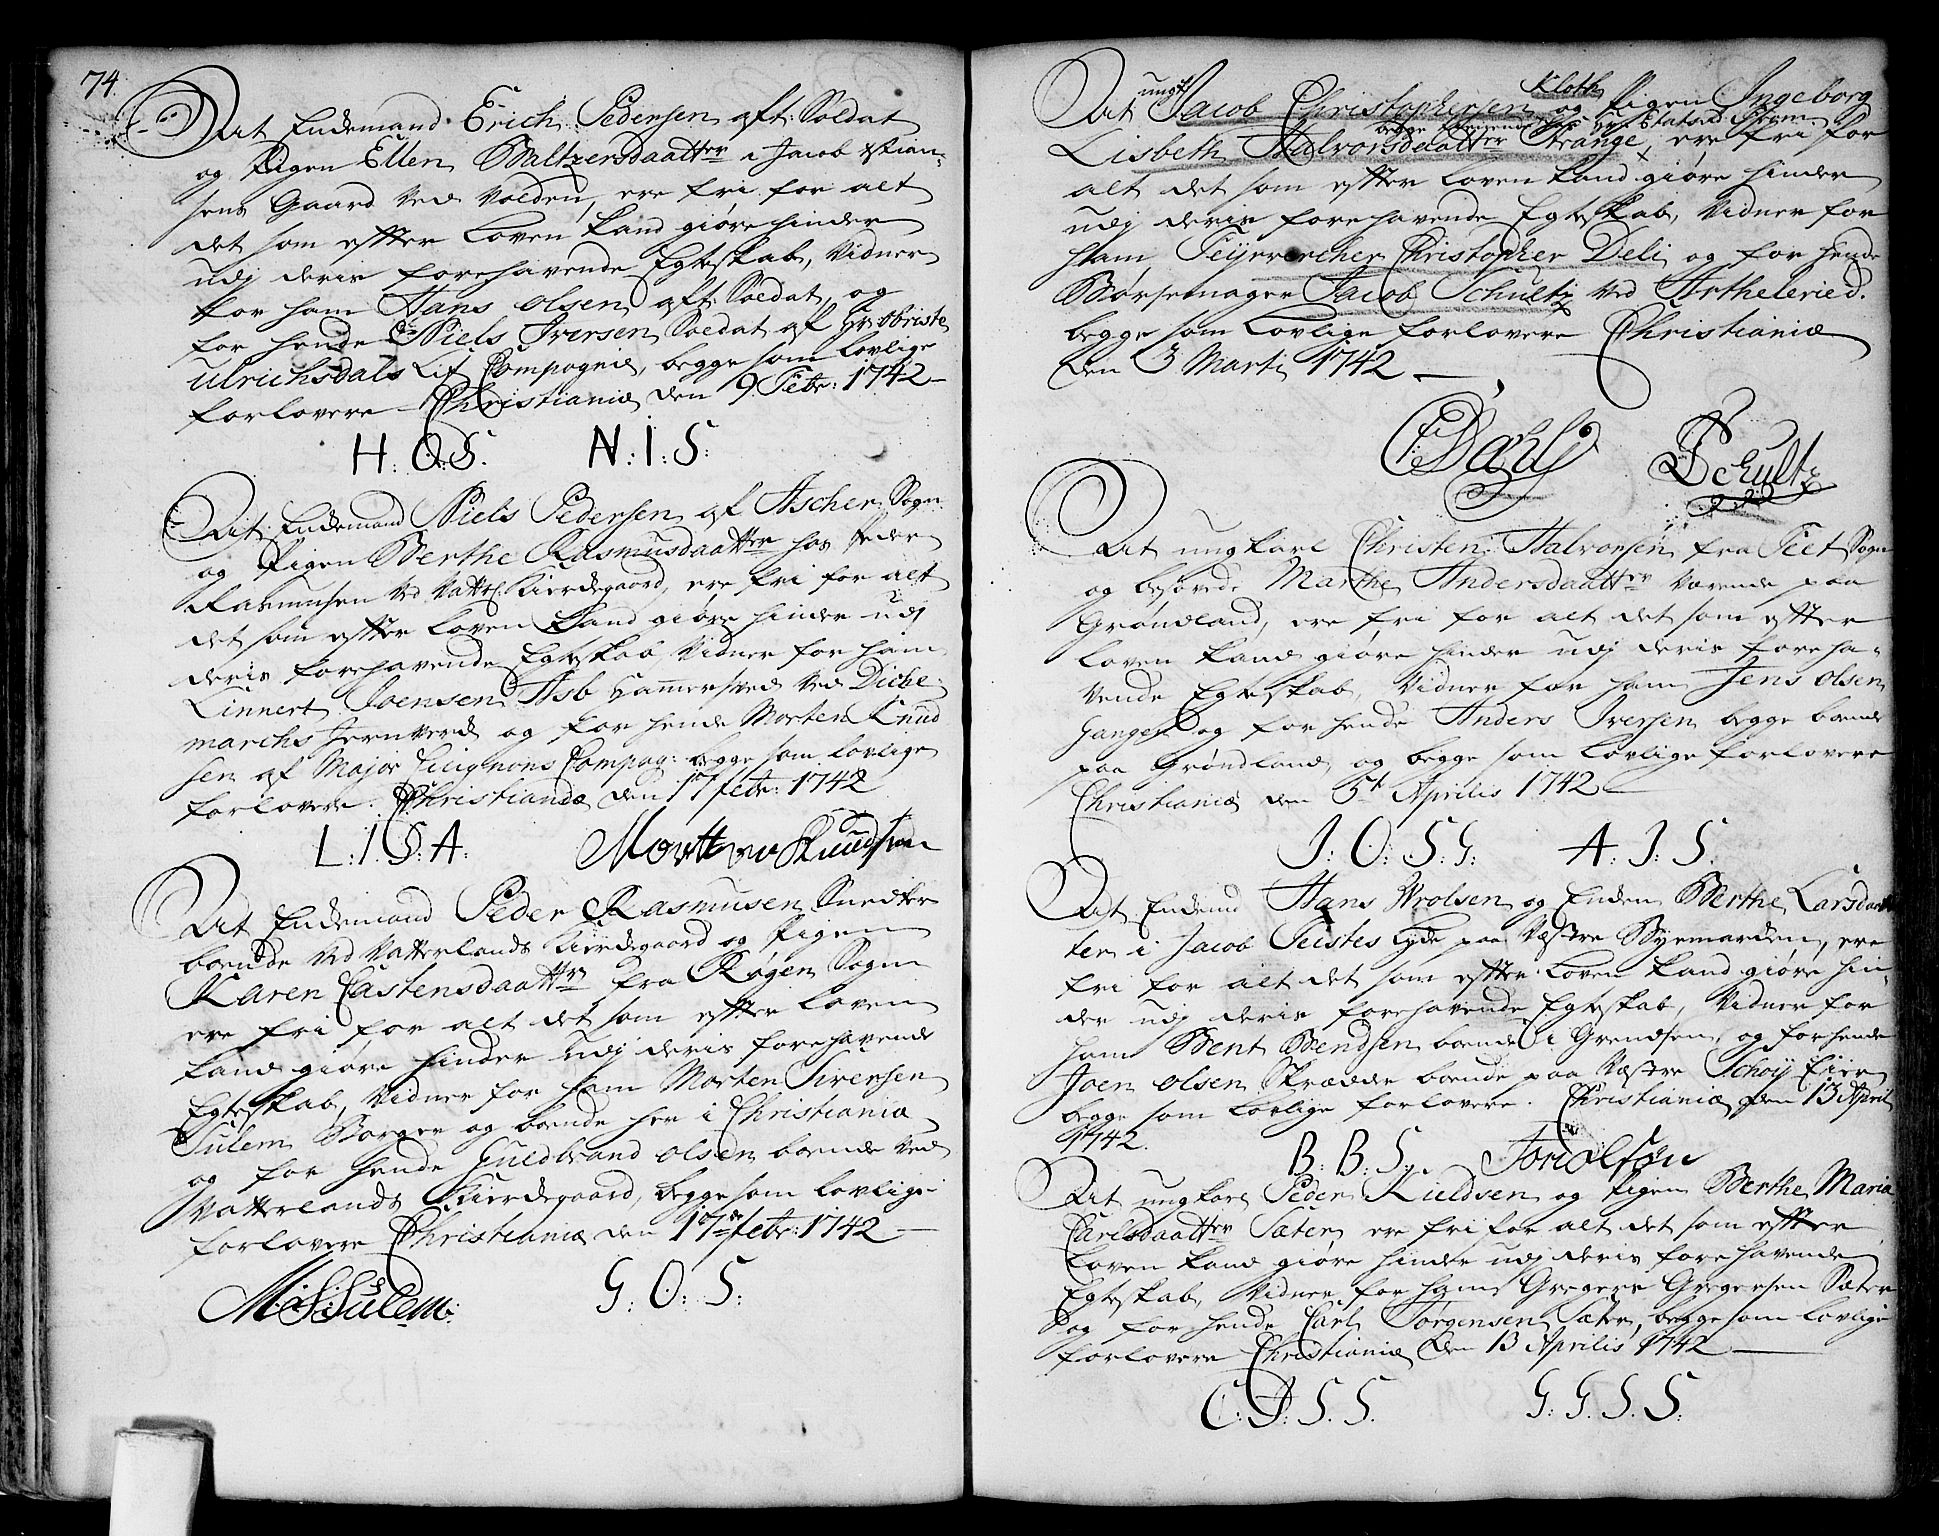 74.
At Enckemand Erich Pedersen aft: Soldat
og Pigen Ellen Baltzersdaatter i Jacob Stian-
sens Gaard ved Volden, ere fri for alt
det som effter Loven kand giøre hinder
udj deris forehavende Egteskab, Vidner
for ham Hans Olsen aft: Soldat, og
for hende Niels Iversen Soldat af Hr Obriste
Ulrichsdals Lif Compagnie, begge som lovlige
forlovere Christianiæ den 9 Febr: 1742
H: O: S. N: I: S:
At Enckemand Niels Pedersen af Ascher Sogn
og Pigen Berthe Rasmusdaatter hos Peder
Rasmusen ved Vatterl: Kierdegaard, ere fri for alt
det som effter Loven kand giøre hinder udj
deris forehavende Egteskab, Vidner for ham
Linnert Joensen Asb Hammersmed ved Diche-
marchs Jernverck og for hende Morten Knud
sen af Major Compag: begge som lovlige
forlovere. Christianiæ den 17 febr: 1742
L: I: S: A. Mortten Knudsen
At Enckemand Peder Rasmusen Snedker
boende ved Vatterlands Kierdegaard og Pigen
Karen Castensdaatter fra Røgen Sogn
ere fri for alt det som effter Loven
kand giøre hinder udj deris forehavende
Egteskab, Vidner for ham Morten Siversen
Sulem Borger og boende her i Christiania
og for hende Guldbrand Olsen boende ved
Vatterlands Kierdegaard, begge som lovlige
forlovere Christianiæ den 17de febr: 1742
M: S: Sulem: G: O: S:
At ungk Jacob Christophersen Kloth og Pigen Ingeborg
Lisbeth Halvorsdaatter Strange, ere fri for
begge Hr Etatsrd Stom.
alt det som effter Loven kand giøre hinder
udj deris forehavende Egteskab, Vidner for
ham Christopher Deli og for hende
Børsemager Jacob Schultz ved Artheleried.
begge som Lovlige forlovere Christianiæ
den 3 Martj 1742
C Dahlj J Schultz
At ungkarl Christen Halvorsen fra Feet Sogn
og besovede Marthe Andersdaatter værende paa
Grønland, ere fri for alt det som effter
Loven kand giøre hinder udj deris foreha-
vende Egteskab, Vidner for ham Jens Olsen
Ganger og for hende Anders Iversen begge boende
paa Grønland, og begge som lovlige forlovere
Christianiæ den 5te Aprilis 1742
J: O: S: G: A: I: S:
At Enckemd Hans Wrolsen og Encken Berthe Larsdaat
ter i Jacob Feistes Lycke paa Vestre Byemarcken, ere
fri for alt det som effter Loven kand giøre hin-
der udj deris forehavende Egteskab, Vidner for
ham Bent Bendsen boende i Grendsen, og for hende
Joen Olsen Skrædder boende paa Vestre
begge som lovlige forlovere. Christianiæ den 13 April
1742.
B: B: S. Jon Olsen
At ungkarl Peder Kieldsen og Pigen Berthe Maria
Carlsdaatter Sæter, ere fri for alt det som effter
Loven kand giøre hinder udj deris forehavende
Egteskab, Vidner for ham Gregers Gregersen Sæter
og for hende Carl Jørgensen Sæter, begge som lovlige
forlovere Christianiæ den 13 Aprilis 1742
C: J: S. S. G: G: S. S: